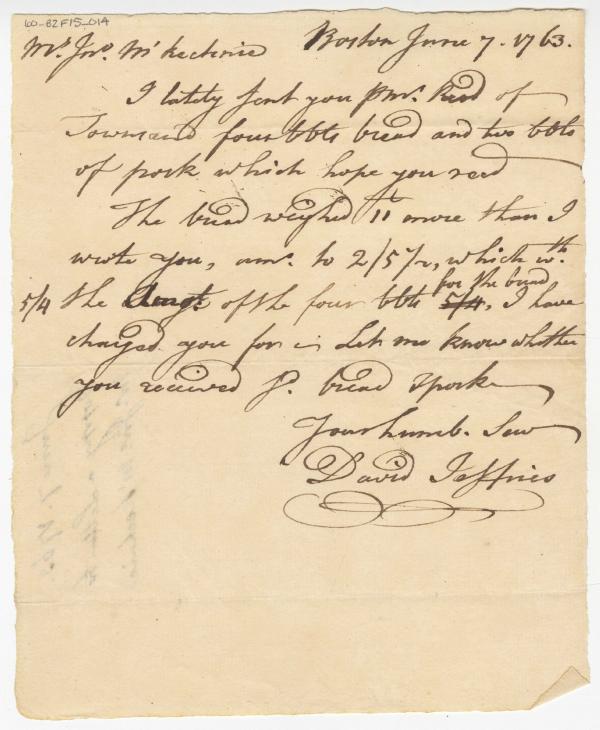 60-82F15_014
Mr. Jno. McKechnie Boston June 7. 1763.
I lately sent you pr Mr. Reed of
Townsend four bbls bread and two bbls
of pork which hope you recd
The bread weighed 11 more than I
wrote you, amo. to 2/5 1/2, which wth.
for the bread
5/4 the of the four bbls 5/4, I have
charged you for is Let me know whether
you received sd. bread & pork
Your humb. Serv
David Jeffries